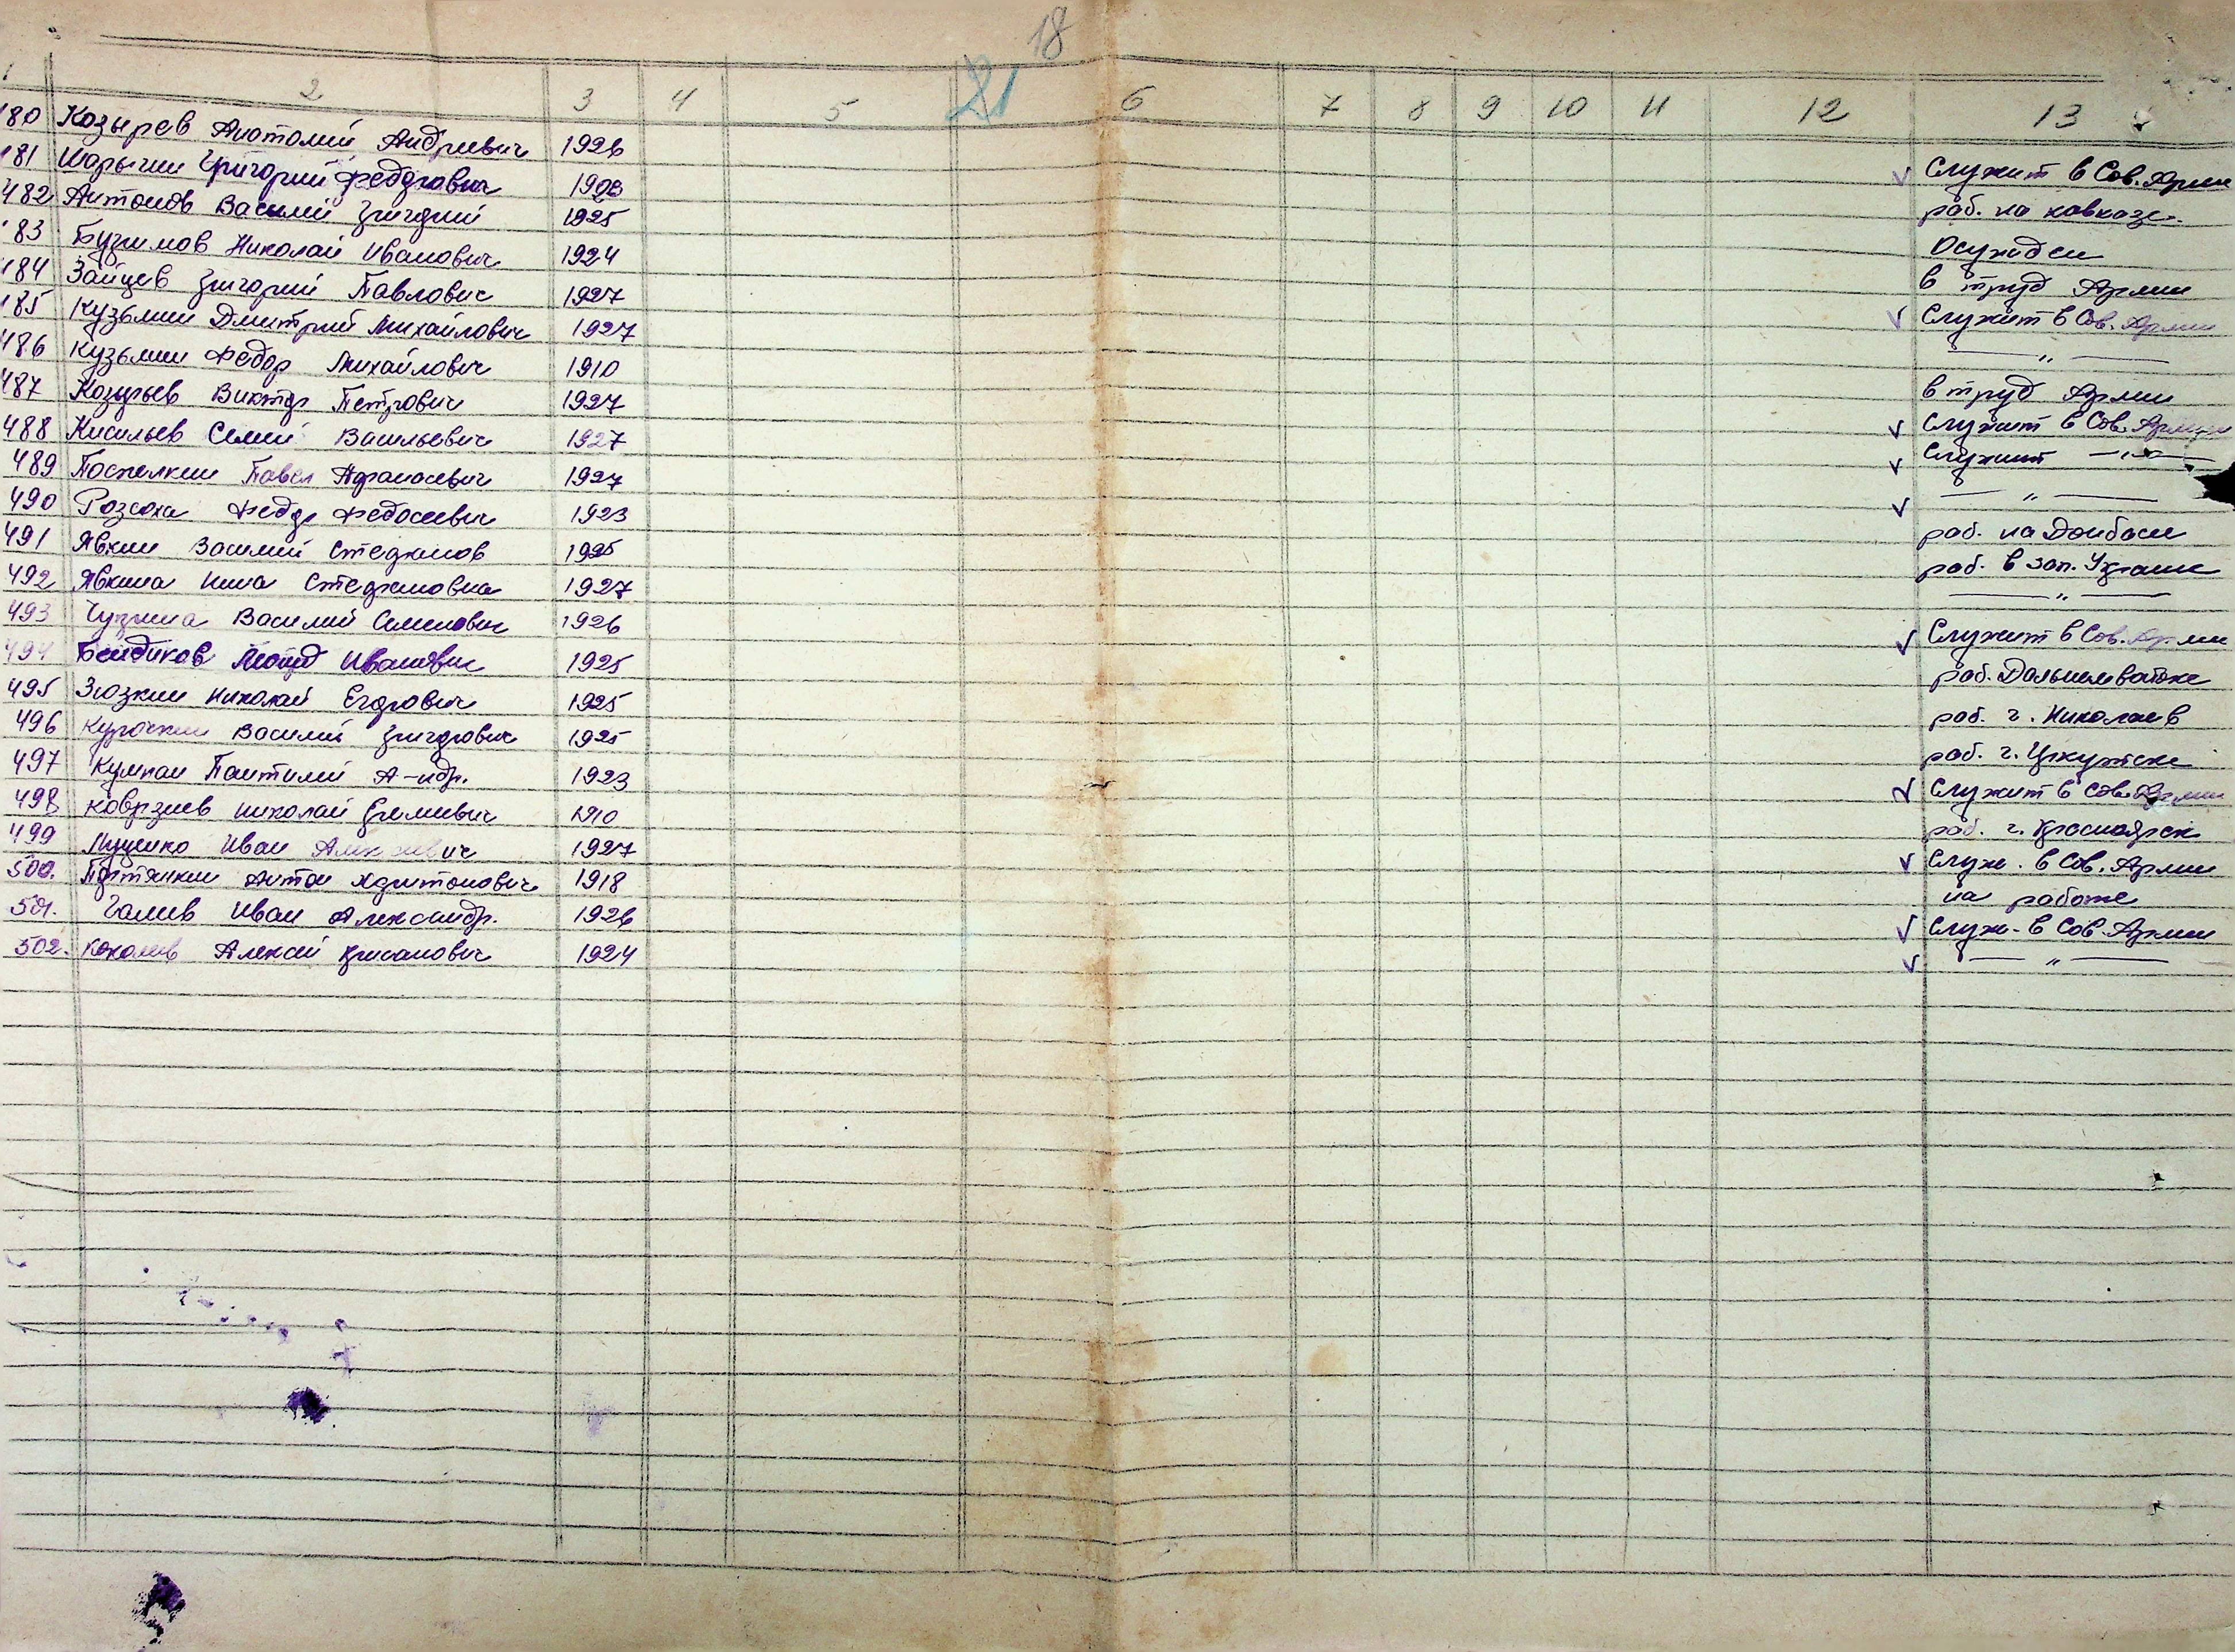 18
21
1 2 3 4 5 6 7 8 9 10 11 12 13
480 Козырев Анатолий Андреевич 1926 ✓ Служит в Сов. Армии
481 Шарыгин Григорий Федорович 1908 раб. на кавказе
482 Антонов Василий Григорий 1925 Осужден
483 Бузимов Николай Иванович 1924 в труд Армии
484 Зайцев Григорий Павлович 1927 ✓ Служит в Сов. Армии
485 Кузьмин Дмитрий Михайлович 1927 — " —
486 Кузьмин Федор Михайлович 1910 в труд Армии
487 Козырьев Виктор Петрович 1927 ✓ Служит в Сов. Армии
488 Кисильев Семен Васильевич 1927 ✓ Служит — " —
489 Поспелкин Павел Афанасевич 1927 ✓ — " —
490 Розсоха Федор Федосеевич 1923 раб. на Донбасе
491 Явкин Василий Стефанов 1925 раб. в зап. Украине
492 Явкина Нина Стефановна 1927 — " —
493 Василий Семенович 1926 ✓ Служит в Сов. Армии
494 Бендиков Леонид Иванович 1925 раб. Дальнем востоке
495 Зюзкин Николай Егорович 1925 раб. г. Николаев
496 Курочкин Василий Григорович 1925 раб. г. Иркутске
497 Кумпан Пантилей А-ндр. 1923 ✓ Служит в Сов. Армии
498 Николай Ефимович 1910 раб. г. Красноярск
499 Луценко Иван Алексеевич 1927 ✓ Служ. в Сов. Армии
500. Портянкин Антон Харитонович 1918 на работе
501. Галиев Иван Александр. 1926 ✓ Служ. в Сов. Армии
502. Алексей Крисанович 1924 ✓ — " —